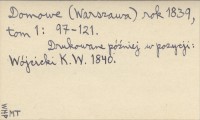 Domowe (Warszawa) rok 1839,
tom 1: 97-121.
Drukowane później w pozycji:
Wójcicki K.W. 1840.
MT